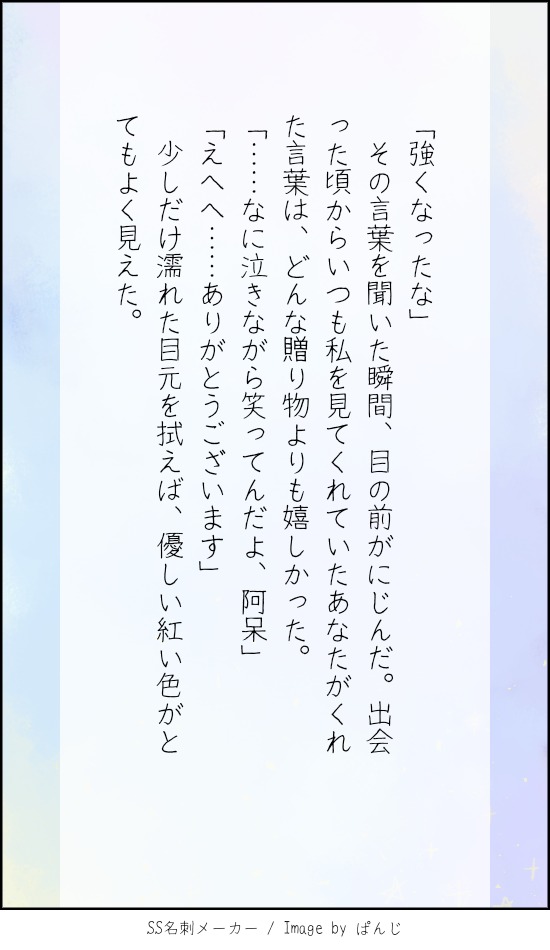 「強くなったな」
　その言葉を聞いた瞬間、目の前がにじんだ。出会
った頃からいつも私を見てくれていたあなたがくれ
た言葉は、どんな贈り物よりも嬉しかった。
「……なに泣きながら笑ってんだよ、阿呆」
「えへへ……ありがとうございます」
　少しだけ濡れた目元を拭えば、優しい紅い色がと
てもよく見えた。
SS名刺メーカー / Image by ぱんじ